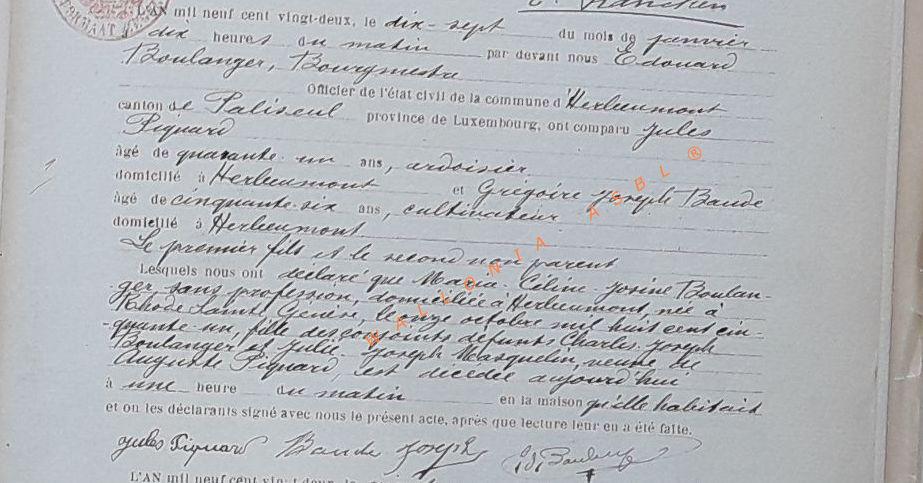 L'AN mil neuf cent vingt-deux, le dix-sept du mois de janvier
à dix heures du matin par devant nous Edouard
Boulanger, Bourgmestre
Officier de l'état civil de la commune d'Herbeumont
canton de Paliseul province de Luxembourg, ont comparu Jules
Piquard
âgé de quarante un ans, ardoisier
domicilié à Herbeumont et Grégoire Joseph Baude
âgé de cinquante-six ans, cultivateur
domicilié à Herbeumont
Le premier fils et le second non parent
Lesquels nous ont déclaré que Maria Céline Josine Boulan-
ger, sans profession, domiciliée à Herbeumont, née à
Rhode Sainte Genèse, le onze octobre mil huit cent cin-
quante-un, fille des conjoints défunts Charles Joseph
Boulanger et Julie Joseph Masquelin, veuve de
Auguste Piquard, est décédée aujourd'hui
à une heure du matin en la maison qu'elle habitait
et on les déclarants signé avec nous le présent acte, après que lecture leur en a été faite.
Jules Piquard Baude Joseph
L'AN mil neuf cent vingt-deux, le
WALLONIA ASBL ®